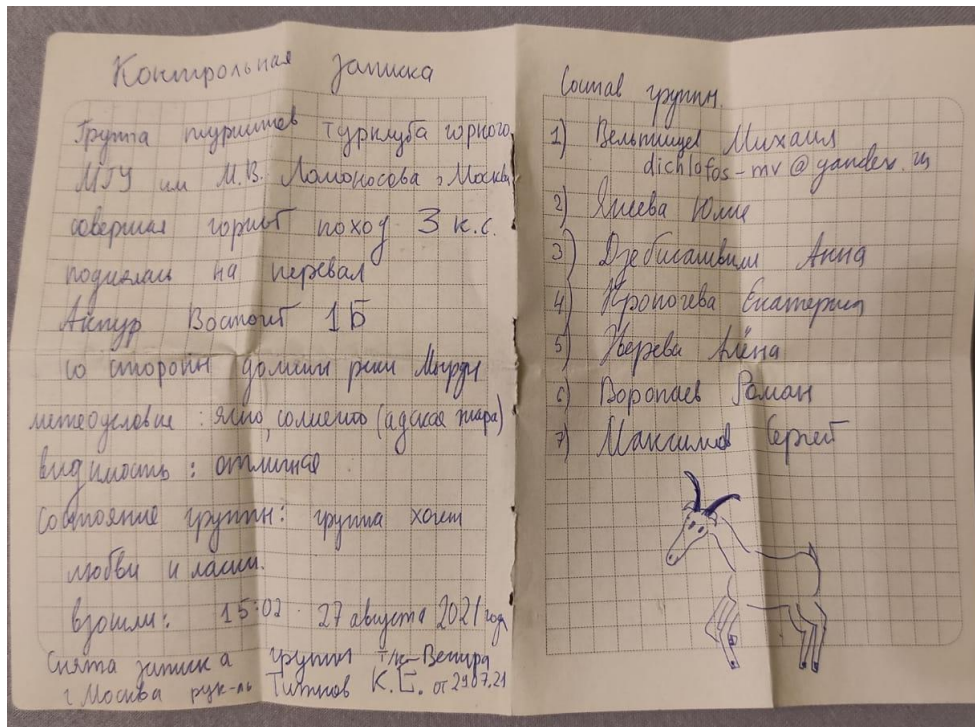 Контрольная записка
Группа туристов турклуба горного
МГУ им М.В. Ломоносова г Москвы
совершая горный поход 3 к.с.
поднялась на перевал
Актур Восточный 1Б
со стороны долины реки Мырды
метеоусловия : ясно, солнечно (адская жара)
видимость : отличная
Состояние группы: группа хочет
любви и ласки.
взошли: 15:02 27 августа 2021 год
Снята записка группы т/к Вечира
г Москва рук-ль К.Е. от 29.07.21
Состав группы.
1) Вельтищев Михаил
dichlofos-mv@yandex.ru
2) Янсева Юлия
3) Дзебисашвили Анна
4) Кропочева Екатерина
5) Зверева Алёна
6) Воропаев Роман
7) Максимов Сергей